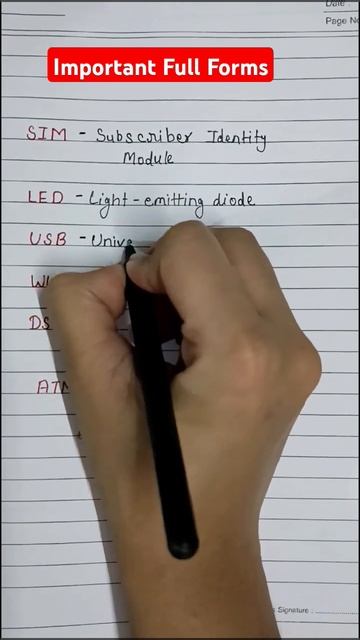 Date :
Page No
Important Full Forms
SIM - Subscriber Identity
Module
LED - Light-emitting diode
USB - Unive
DS
ATM
Signature :